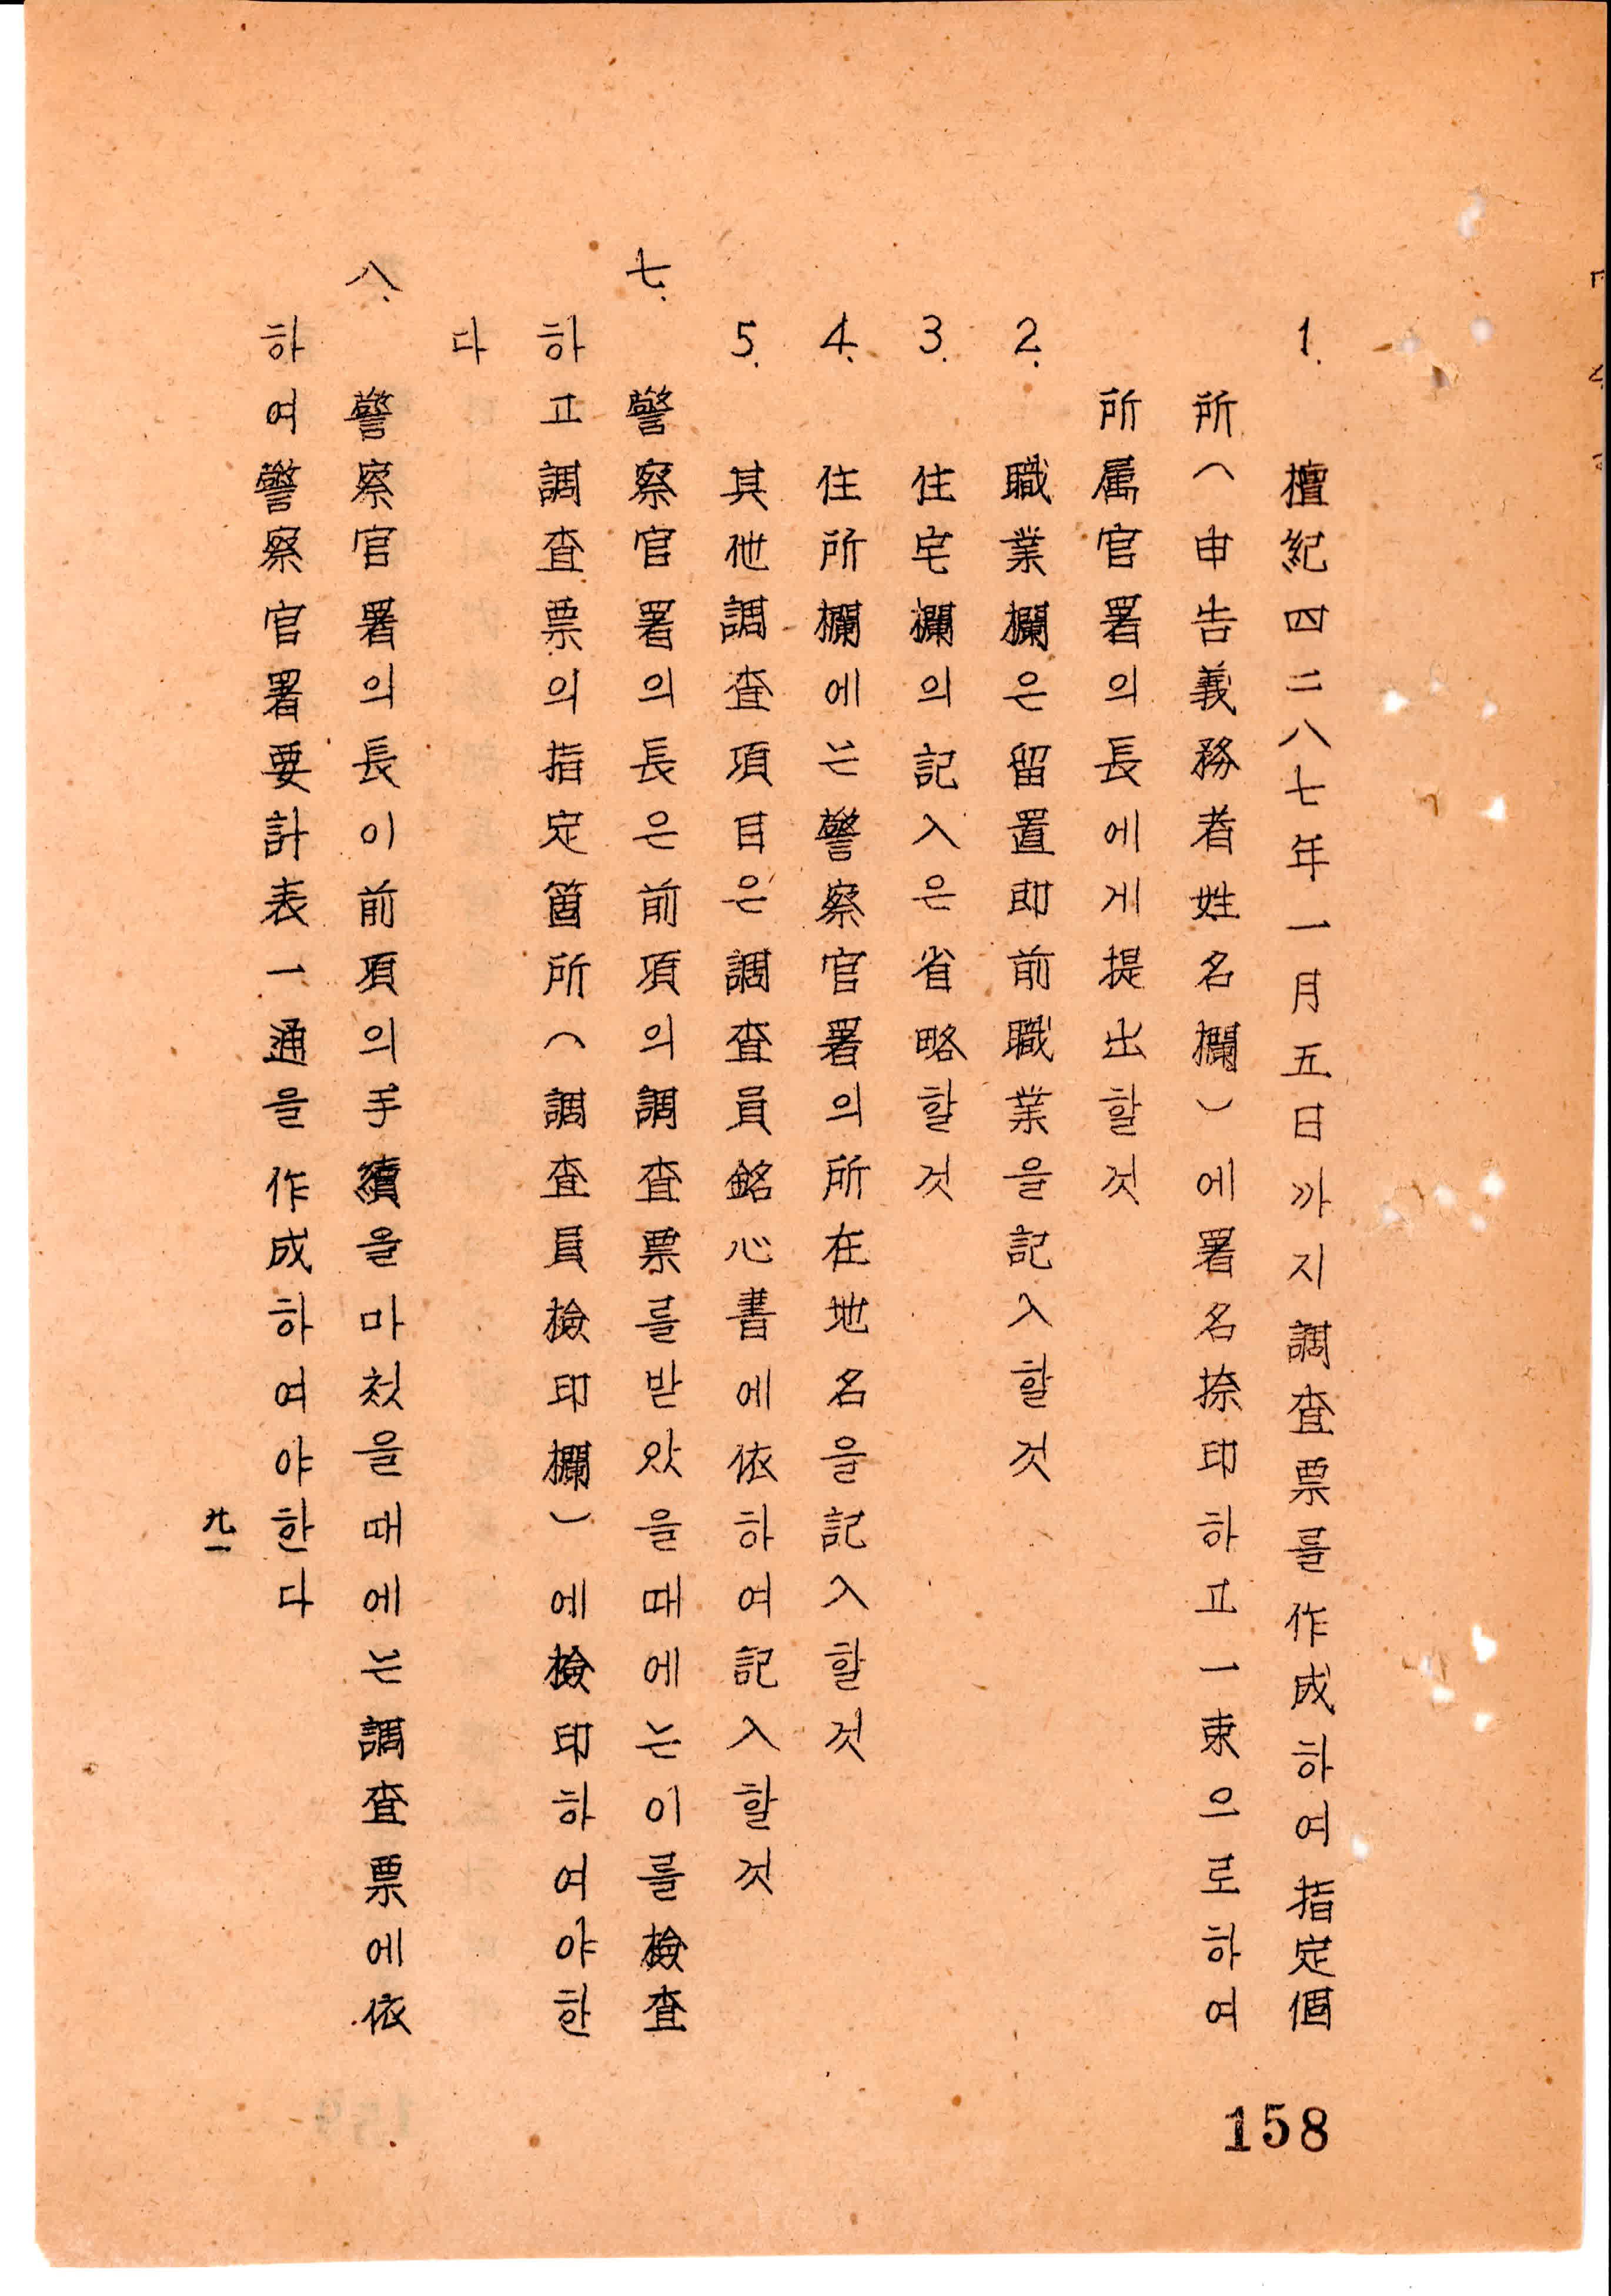 1. 檀紀四二八七年一月五日까지調査票를作成하여指定個
所(申告義務者姓名欄)에署名捺印하고一束으로하여
所属官署의長에게提出할것
2. 職業欄은留置即前職業을記入할것
3. 住宅欄의記入은省略할것
4. 住所欄에는警察官署의所在地名을記入할것
5. 其他調査項目은調査員銘心書에依하여記入할것
七. 警察官署의長은前項의調査票를받았을때에는이를檢査
하고調査票의指定箇所(調査員檢印欄)에檢印하여야한
다
八. 警察官署의長이前項의手續을마첬을때에는調査票에依
하여警察官署要計表一通을作成하여야한다
九一
158